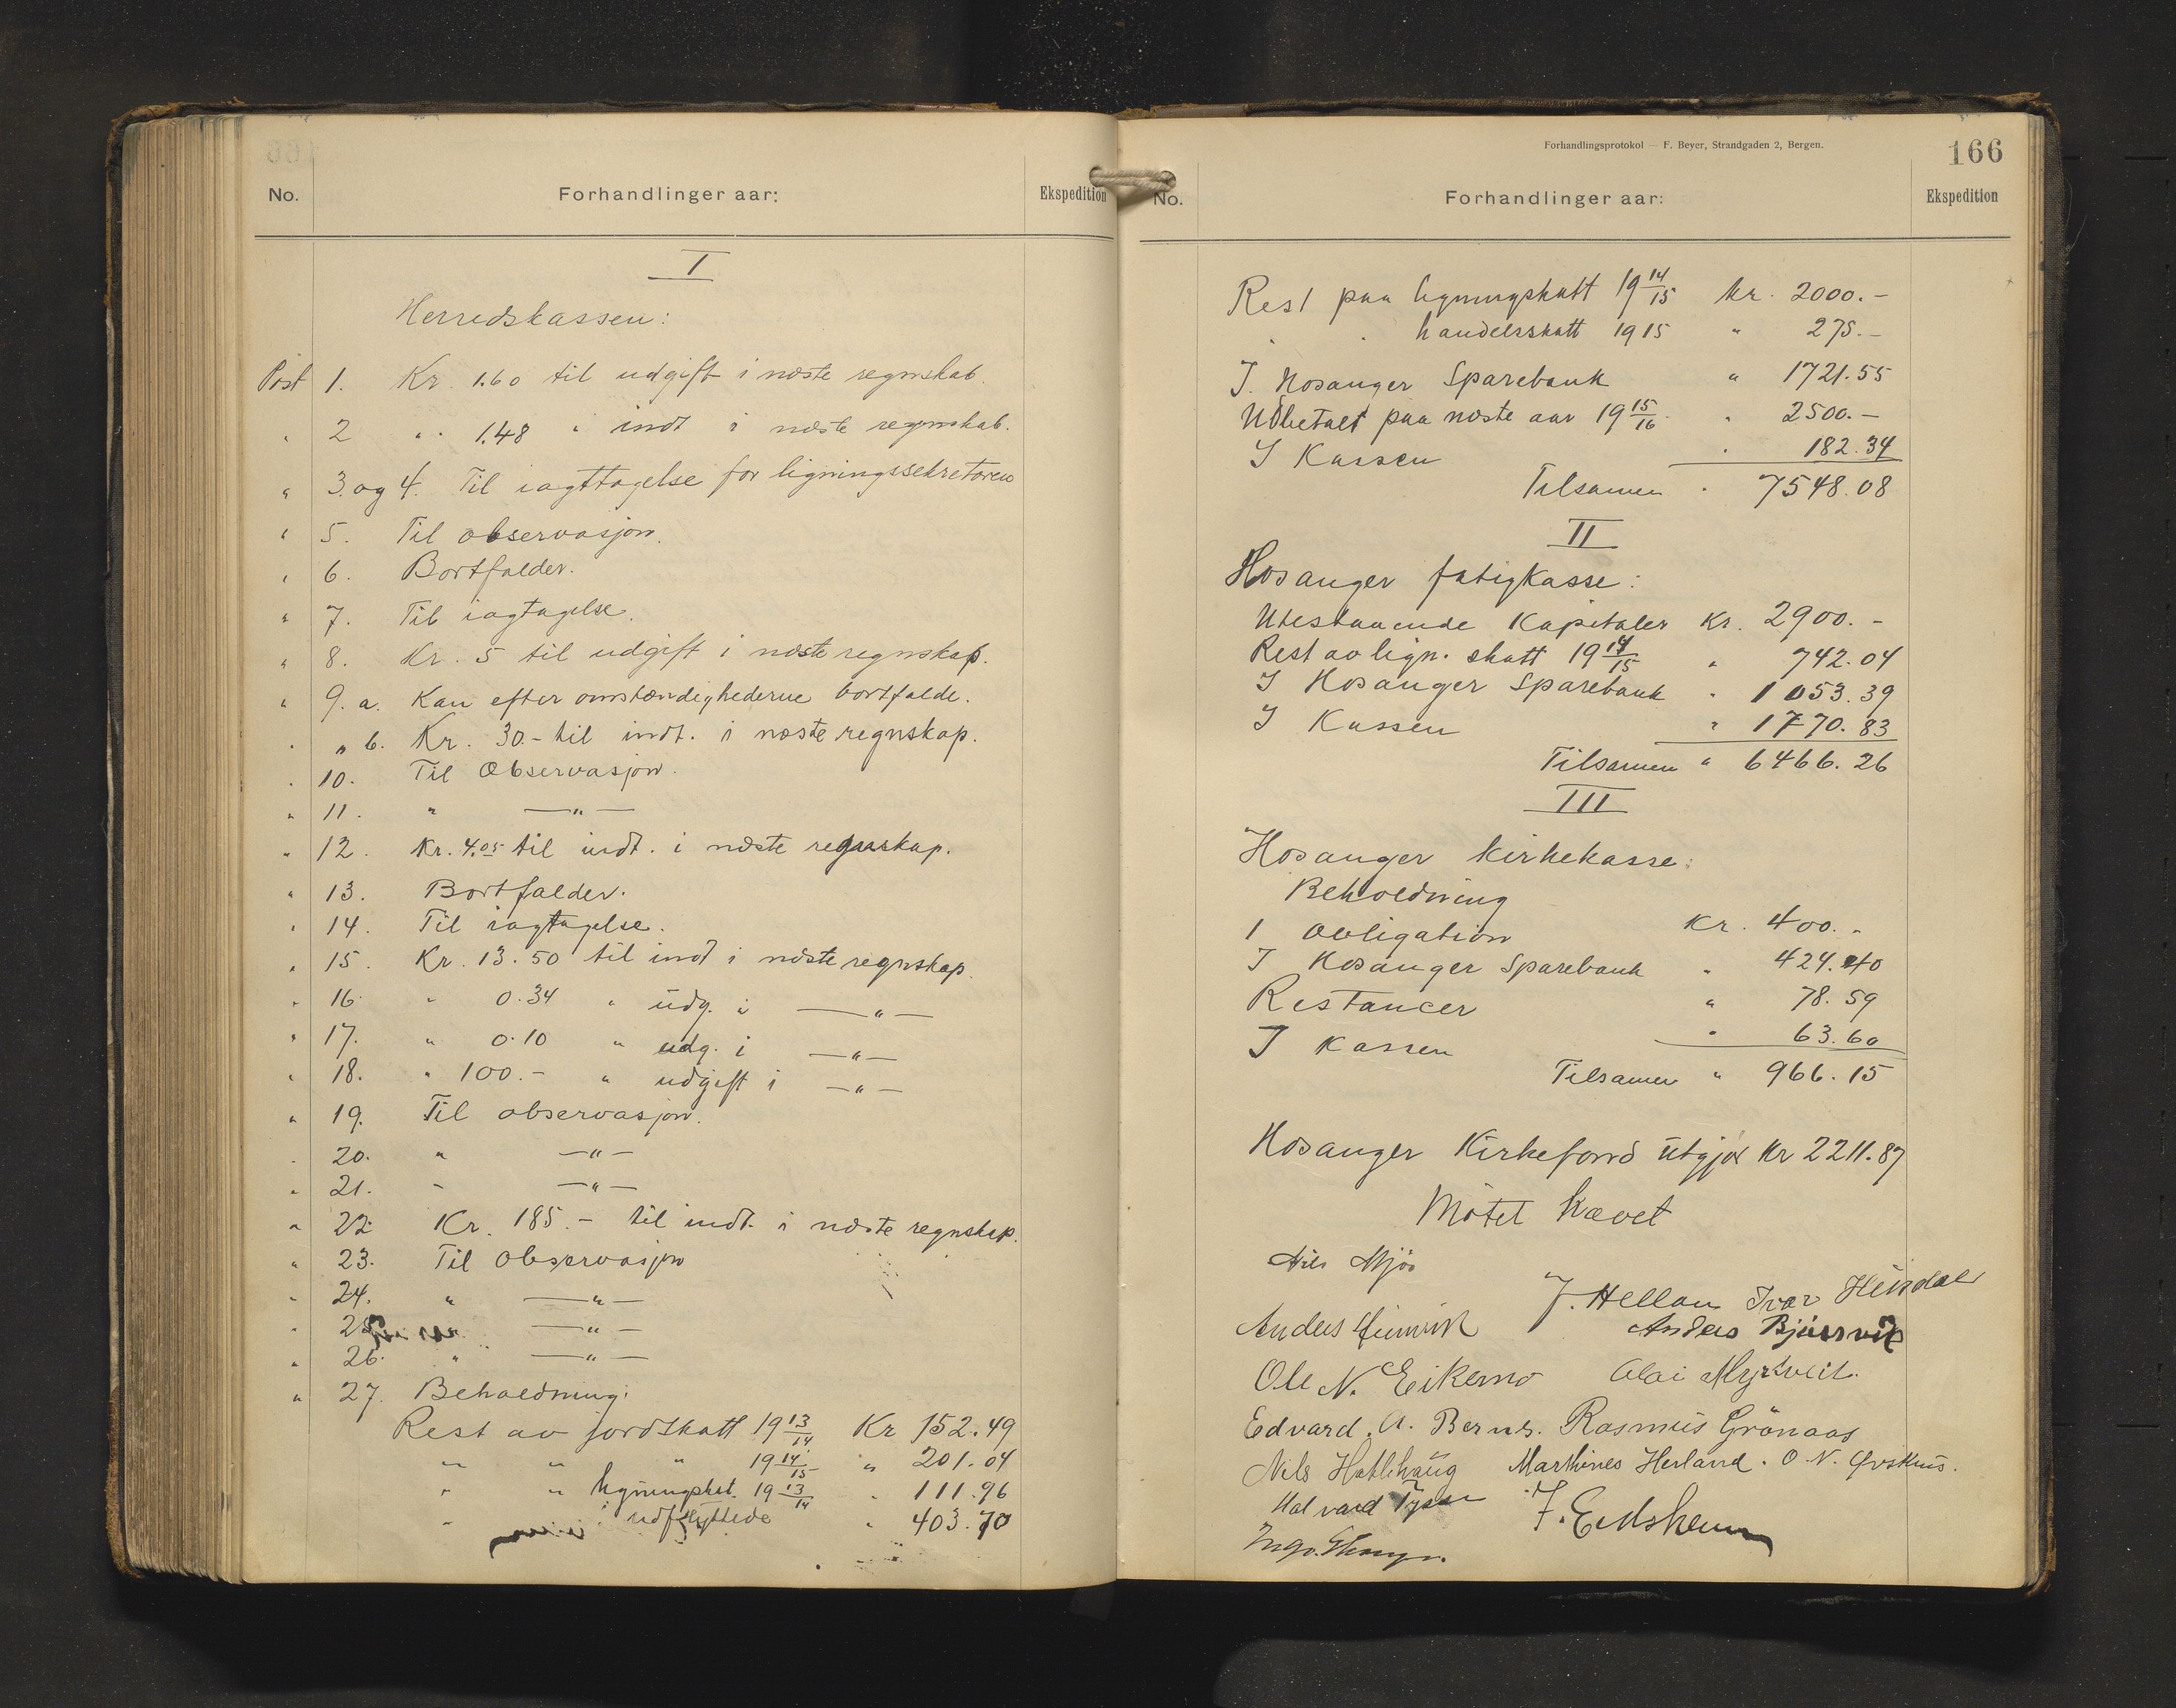 No.
Forhandlinger aar:
Ekspedition
I
Herredskassen:
Post 1. Kr. 1.60 til udgift i næste regnskab.
" 2 " 1.48 " indt i næste regnskab.
" 3. og 4. Til iagttagelse for ligningssekretæren
" 5. Til observasjon.
" 6. Bortfalder.
" 7. Til iagtagelse.
" 8. Kr. 5 til udgift i næste regnskap.
" 9. a. Kan efter omstændighederne bortfalde.
" " b. Kr. 30.- til indt. i næste regnskap.
" 10. Til Observasjon.
" 11. " —"—
" 12. Kr. 4.05 til indt. i næste regnskap.
" 13. Bortfalder.
" 14. Til iagtagelse.
" 15. Kr. 13.50 til indt i næste regnskap.
" 16. " 0.34 " udg. i —"—
" 17. " 0.10 " udg. i —"—
" 18. " 100.- " udgift i —"—
" 19. Til observasjon.
" 20. " —"—
" 21. " —"—
" 22 Kr. 185.- til indt. i næste regnskap.
" 23. Til Observasjon
" 24. " —"—
" 25. " —"—
" 26. " —"—
" 27. Beholdning:
Rest av jordskatt 19 13/14 Kr 152.49
" " " 19 14/15 " 201.04
" " ligningskat. 19 13/14 " 111.96
" " udflyttede " 403.70
Forhandlingsprotokol — F. Beyer, Strandgaden 2, Bergen.
166
No.
Forhandlinger aar:
Ekspedition
Rest paa ligningskatt 19 14/15 kr. 2000.-
" " handelsskatt 1915 " 275.-
I. Hosanger Sparebank " 1721.55
Udbetalt paa næste aar 19 15/16 " 2500.-
I Kassen " 182.34
Tilsamen " 7548.08
II
Hosanger fatigkasse:
Utestaaende Kapitaler Kr. 2900.-
Rest av lign. skatt 19 14/15 " 742.04
I Hosanger Sparebank " 1053.39
I Kassen " 1770.83
Tilsamen " 6466.26
III
Hosanger kirkekasse:
Beholdning
1 Obligation Kr. 400.-
I Hosanger Sparebank " 424.40
Restancer " 78.59
I Kassen " 63.60
Tilsamen " 966.15
Hosanger Kirkefond utgjør Kr 2211.87
Møtet hævet
Nils Mjøs
J. Hellan Ivar Hindal
Anders Anders Bjørsvik
Ole N. Eikemo Olai Myrtveit.
Edvard. A. Bernes. Rasmus Grønaas
Nils Hatlehaug Marthines Herland. O. N.
Halvard Tysse J. Eidsheim